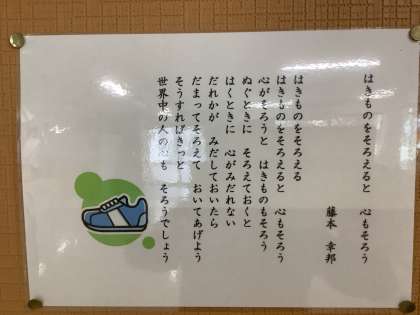 はきものをそろえると　心もそろう
藤本　幸邦
はきものをそろえる
はきものをそろえると　心もそろう
心がそろうと　はきものもそろう
ぬぐときに　そろえておくと
はくときに　心がみだれない
だれかが　みだしておいたら
だまってそろえて　おいてあげよう
そうすればきっと
世界中の人の心も　そろうでしょう